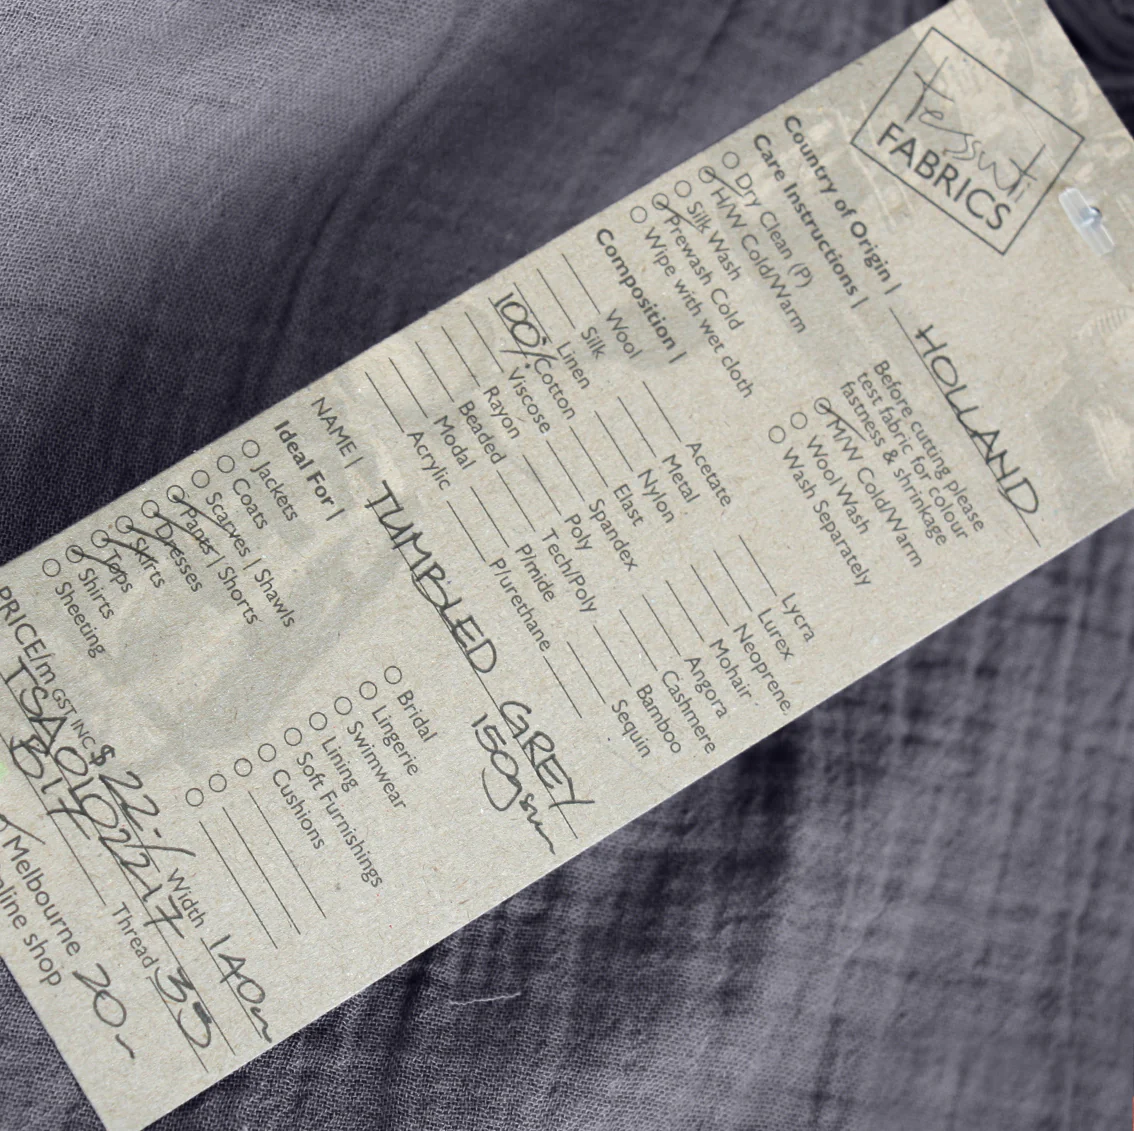 tessuti
FABRICS
Country of Origin | HOLLAND
Care Instructions |
Dry Clean (P)
H/W Cold/Warm
Silk Wash
Prewash Cold
Wipe with wet cloth
Before cutting please
test fabric for colour
fastness & shrinkage
M/W Cold/Warm
Wool Wash
Wash Separately
Composition |
Wool
Silk
Linen
100% Cotton
Viscose
Rayon
Beaded
Modal
Acrylic
Acetate
Metal
Nylon
Elast
Spandex
Poly
Tech/Poly
P/mide
P/urethane
Lycra
Lurex
Neoprene
Mohair
Angora
Cashmere
Bamboo
Sequin
NAME | TUMBLED GREY
150gsm
Ideal For |
Jackets
Coats
Scarves | Shawls
Pants | Shorts
Dresses
Skirts
Tops
Shirts
Sheeting
Bridal
Lingerie
Swimwear
Lining
Soft Furnishings
Cushions
PRICE/m GST INC $22.- Width 140
TSA0102217
B17 Thread 35
Melbourne 20
line shop